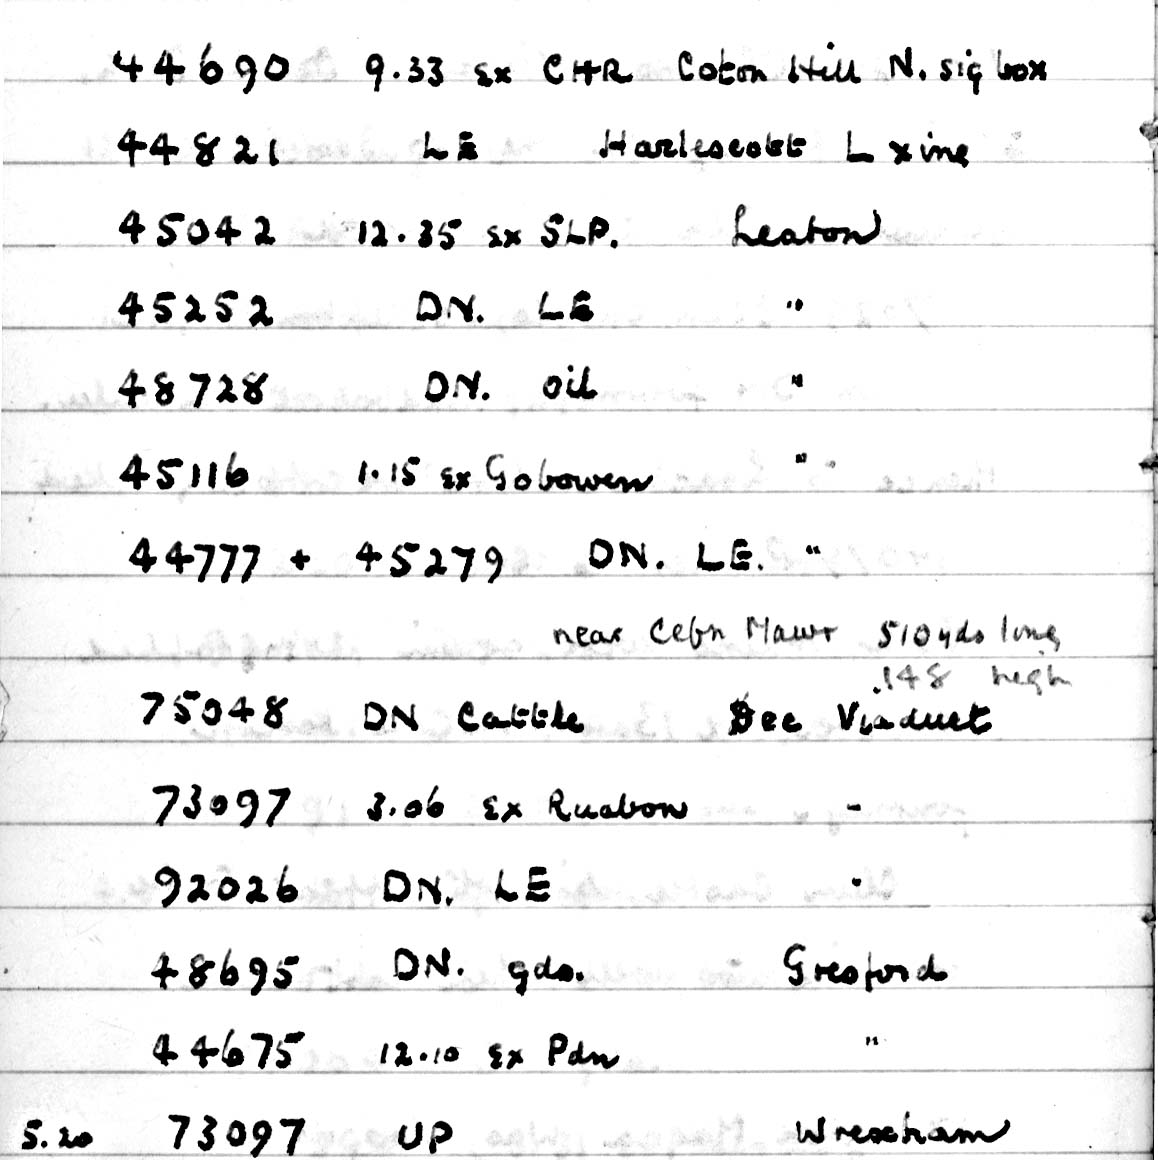 44690 9.33 ex CHR Coton Hill N. sig box
44821 LE Harlescott L xing
45042 12.35 ex SLP. Leaton
45252 DN. LE "
48728 DN. oil "
45116 1.15 ex Gobowen "
44777 + 45279 DN. LE. "
near Cefn Mawr 510 yds long
148 high
75048 DN Cattle Dee Viaduct
73097 3.06 ex Ruabon "
92026 DN. LE "
48695 DN. gds. Gresford
44675 12.10 ex Pdn "
5.20 73097 UP Wrexham